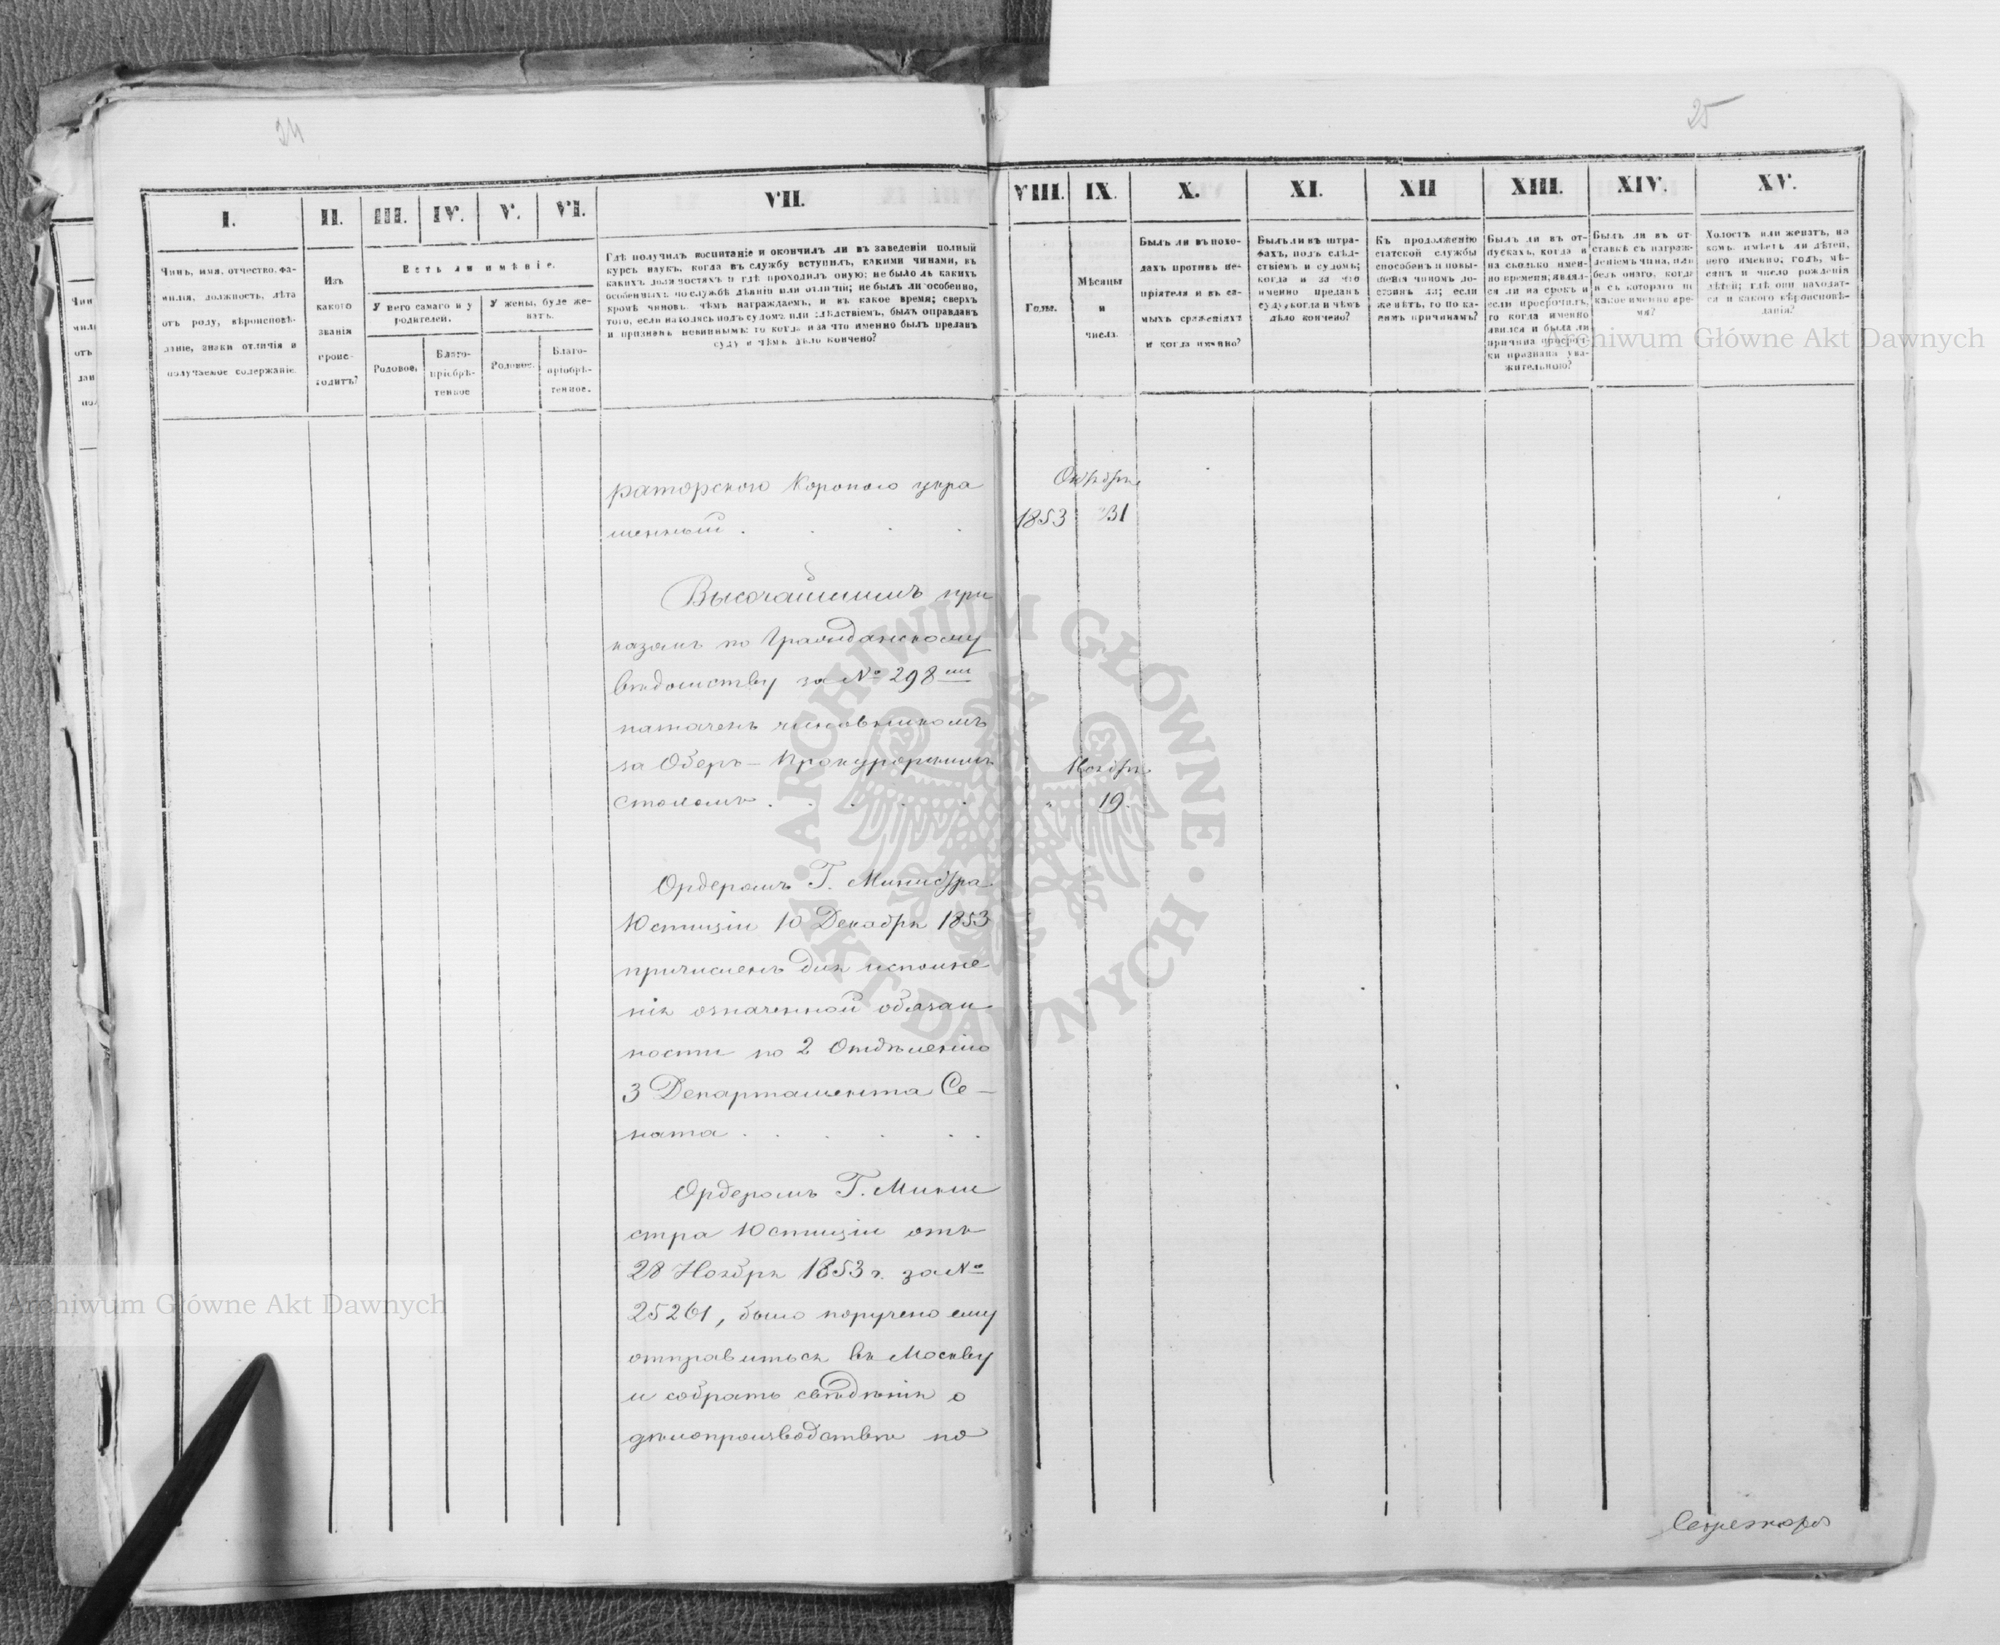 24
25
I.
II.
III.
IV.
V.
VI.
VII.
VIII.
IX.
X.
XI.
XII
XIII.
XIV.
XV.
Чинъ, имя, отчество, фа-
милія, должность, лѣта
отъ роду, вѣроисповѣ-
даніе, знаки отличія и
получаемое содержаніе.
Изъ
какого
званія
проис-
ходитъ?
Есть ли имѣніе.
У него самаго и у
родителей.
У жены, буде же-
натъ.
Родовое.
Благо-
пріобрѣ-
тенное
Родовое.
Благо-
пріобрѣ-
тенное.
Гдѣ получилъ воспитаніе и окончилъ ли въ заведеніи полный
курсъ наукъ, когда въ службу вступилъ, какими чинами, въ
какихъ должностяхъ и гдѣ проходилъ оную; не было ль какихъ
особенныхъ по службѣ дѣяній или отличій; не былъ ли особенно,
кромѣ чиновъ, чѣмъ награждаемъ, и въ какое время; сверхъ
того, если находясь подъ судомъ или слѣдствіемъ, былъ оправданъ
и признанъ невиннымъ: то когда и за что именно былъ преданъ
суду и чѣмъ дѣло кончено?
Годы.
Мѣсяцы
и
числа.
Былъ ли въ похо-
дахъ противъ не-
пріятеля и въ са-
мыхъ сраженіяхъ
и когда именно?
Былъ ли въ штра-
фахъ, подъ слѣд-
ствіемъ и судомъ;
когда и за что
именно преданъ
суду; когда и чѣмъ
дѣло кончено?
Къ продолженію
статской службы
способенъ и повы-
шенія чиномъ до-
стоинъ ли; если
же нѣтъ, то по ка-
кимъ причинамъ?
Былъ ли въ от-
пускахъ, когда и
на сколько имен-
но времени; являл-
ся ли на срокъ и
если просрочилъ,
то когда именно
явился и была ли
причина просроч-
ки признана ува-
жительною?
Былъ ли въ от-
ставкѣ съ награж-
деніемъ чина, или
безъ онаго, когда
и съ котораго по
какое именно вре-
мя?
Холостъ или женатъ, на
комъ, имѣетъ ли дѣтей,
кого именно; годъ, мѣ-
сяцъ и число рожденія
дѣтей; гдѣ они находят-
ся и какого вѣроисповѣ-
данія?
раторскою Короною укра
шенный . . . .
Октября
1853 31
Высочайшимъ при
казомъ по Гражданскому
вѣдомству за № 298мъ
назначенъ чиновникомъ
за Оберъ-Прокурорскимъ
столомъ . . . .
Ноября
" 19.
Ордеромъ Г. Министра
Юстиціи 10 Декабря 1853
причисленъ для исполне
нія означенной обязан
ности по 2 Отдѣленію
3 Департамента Се-
ната . . . . .
Ордеромъ Г. Мини
стра Юстиціи отъ
28 Ноября 1853 г. за №
25261, было поручено ему
отправиться въ Москву
и собрать свѣдѣнія о
дѣлопроизводствѣ по
Секретарь
Archiwum Główne Akt Dawnych
Archiwum Główne Akt Dawnych
ARCHIWUM GŁÓWNE · AKT DAWNYCH ·